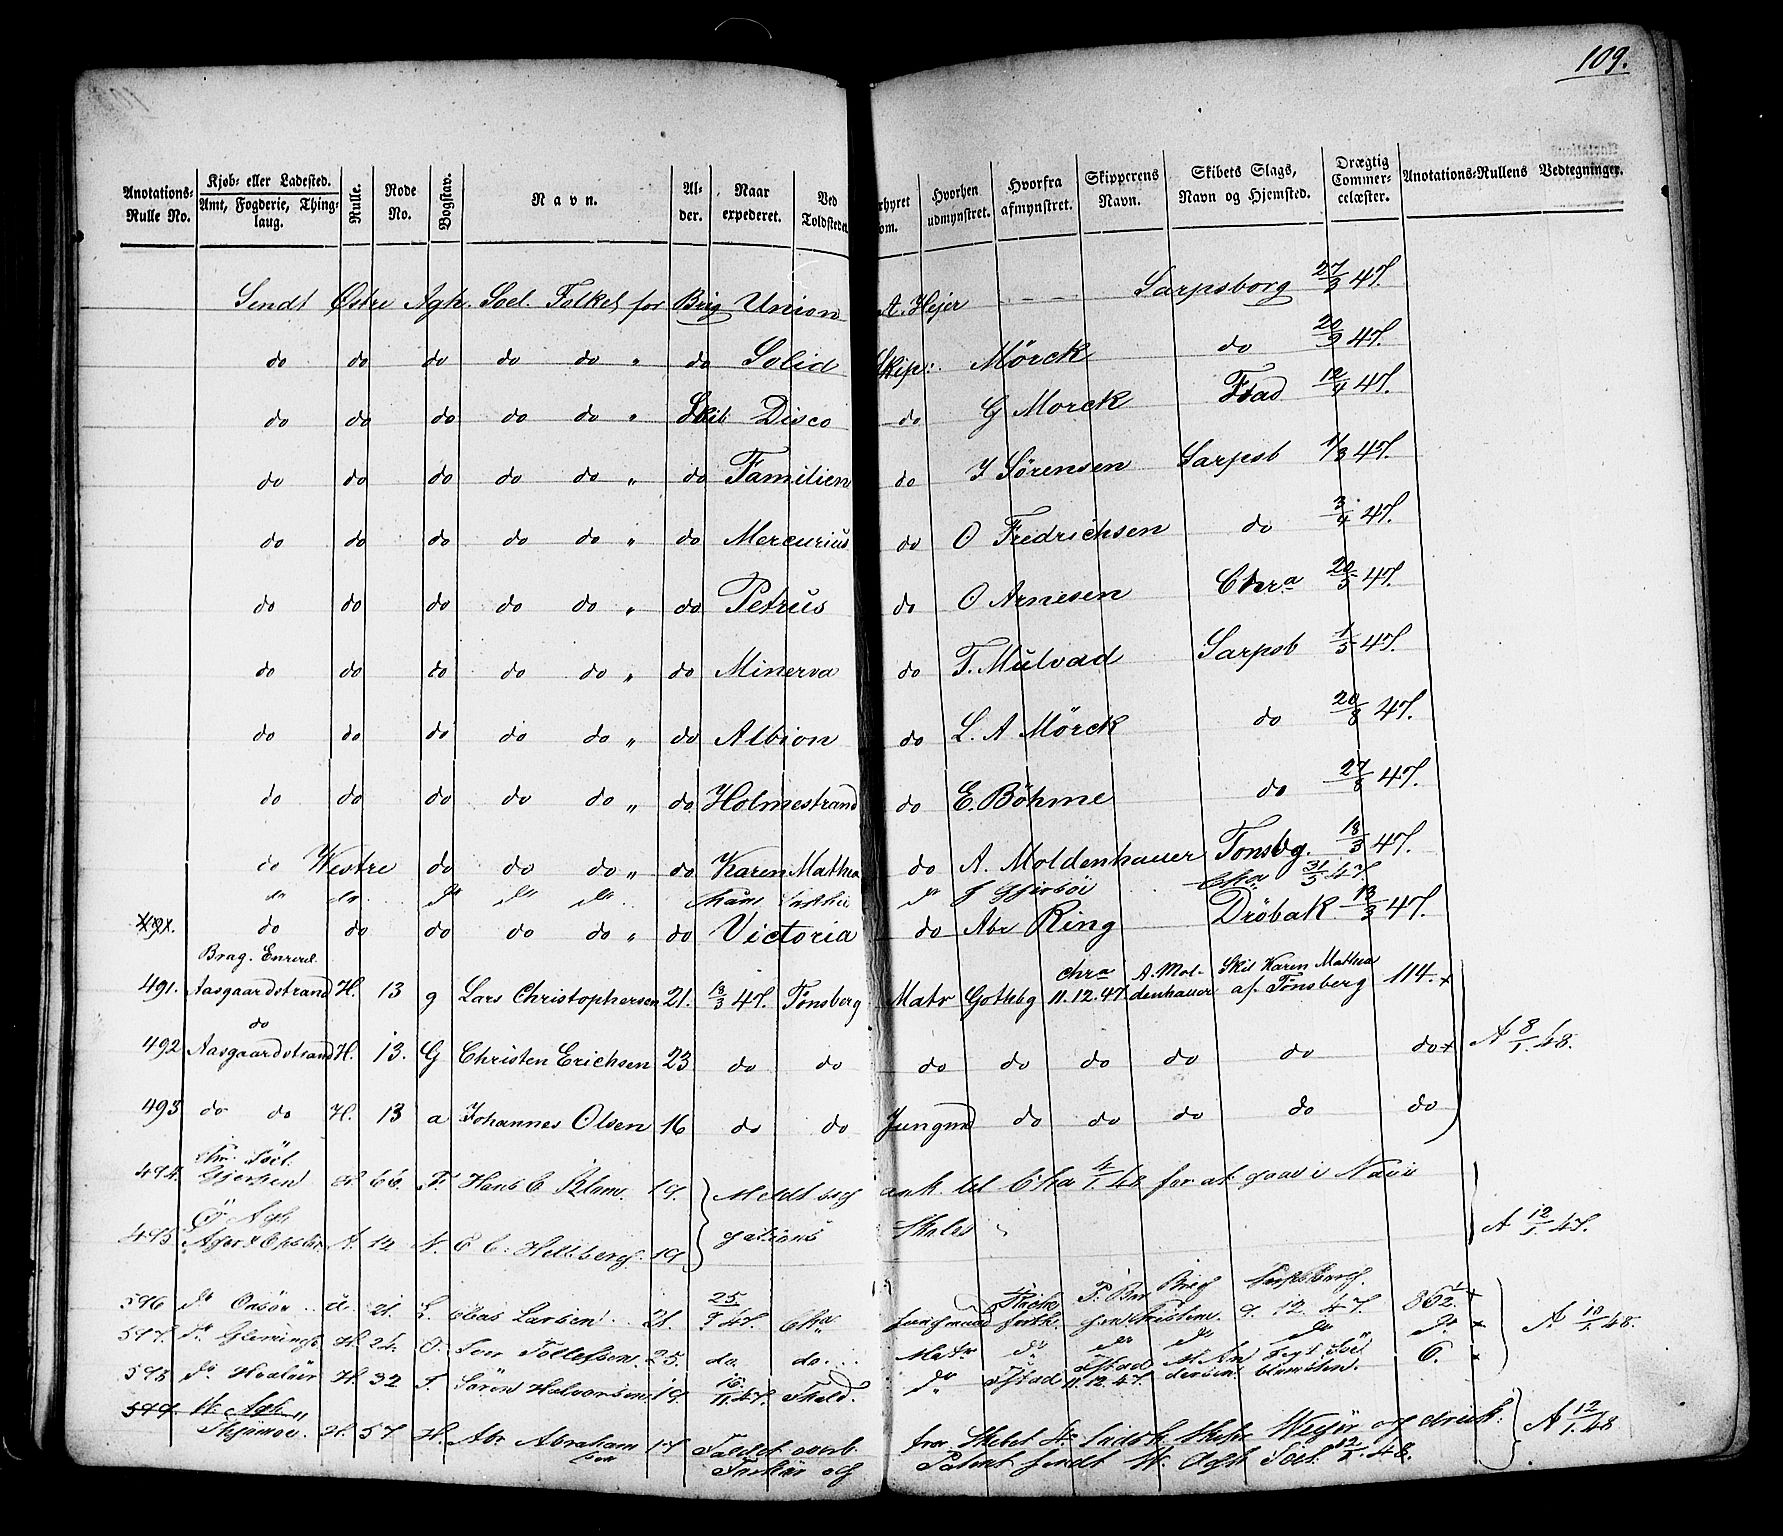 109.
Anotations-Rulle No. Kjøb- eller Ladested. Amt, Fogderie, Thinglaug. Rulle. Rode No. Bogstav. Navn. Alder. Naar expederet. Ved Toldstedet Hvorhen udmynstret. Hvorfra afmynstret. Skipperens Navn. Skibets Slags, Navn og Hjemsted. Drægtig Commercelæster. Anotations-Rullens Vedtegninger.
Sendt Østre Agh. Soel. Folket for Brig Union A. Hejer Sarpsborg 27/3 47.
do do do do do " do Solid Skip: Mörck do 20/9 47.
do do do do do " Skib Disco do G Morck Fstad 12/4 47.
do do do do do " do Familien do I Sørensen Sarpsb 1/3 47.
do do do do do " do Mercurius do O Fredrichsen do 3/4 47.
do do do do do " do Petrus do O Arnesen Chra 20/5 47.
do do do do do " do Minerva do T. Mulvad Sarpsb 1/5 47.
do do do do do " do Albion do L. A Mörck do 20/8 47.
do do do do do " do Holmestrand do E. Böhme do 27/8 47.
do Westre do do do " do Karen Mathea do A. Moldenhauer Tonsbg. 18/3 47.
do do do do do do J Chra 31/3 47.
491. do do do do do " do Victoria do Abr Ring Dröbak 13/3 47.
Brag. Enrul.
491. Aasgaardstrand H. 13 g Lars Christophersen 21. 13/3 47. Tönsberg Matr Gothbg Chra 11.12.47. A. Moldenhauer Skib Karen Mathea af Tönsberg 114. x
do
492 Aasgaardstrand H. 13. G Christen Erichsen 23 do do do do do do do do x A 8/1. 48.
493 do do H. 13 a Johannes Olsen 16 do do Jungmd do do do do do
494. 66. F. Hans C. Klam. 19. Meldt sig ank. til Chra 4/1. 48 for at gaae i Navi
Ö Agh
495 Aker 12 N. C. C. Hellberg. 19 gations Skolen A 12/1. 47.
596 do Onsöe 21. L. Larsen 21. 25/9 47 Chra Jungmand P. Brig Sarpsborg. 9. 12. 47. 862. x A 10/1. 48.
597. do H. 24. O. Tollefsen 25. do. do. Matr do do do do do x
598 do Hvalöer H. 32 T. Sören Halvorsen 19. 16/11.47. do Fstad 11.12.47. 6.
599. W. Agh "
H. 57 H. Abr Abrahamsen 17 og
Patent sendt W. Agh Soel. 12/1. 48. A 12/1. 48